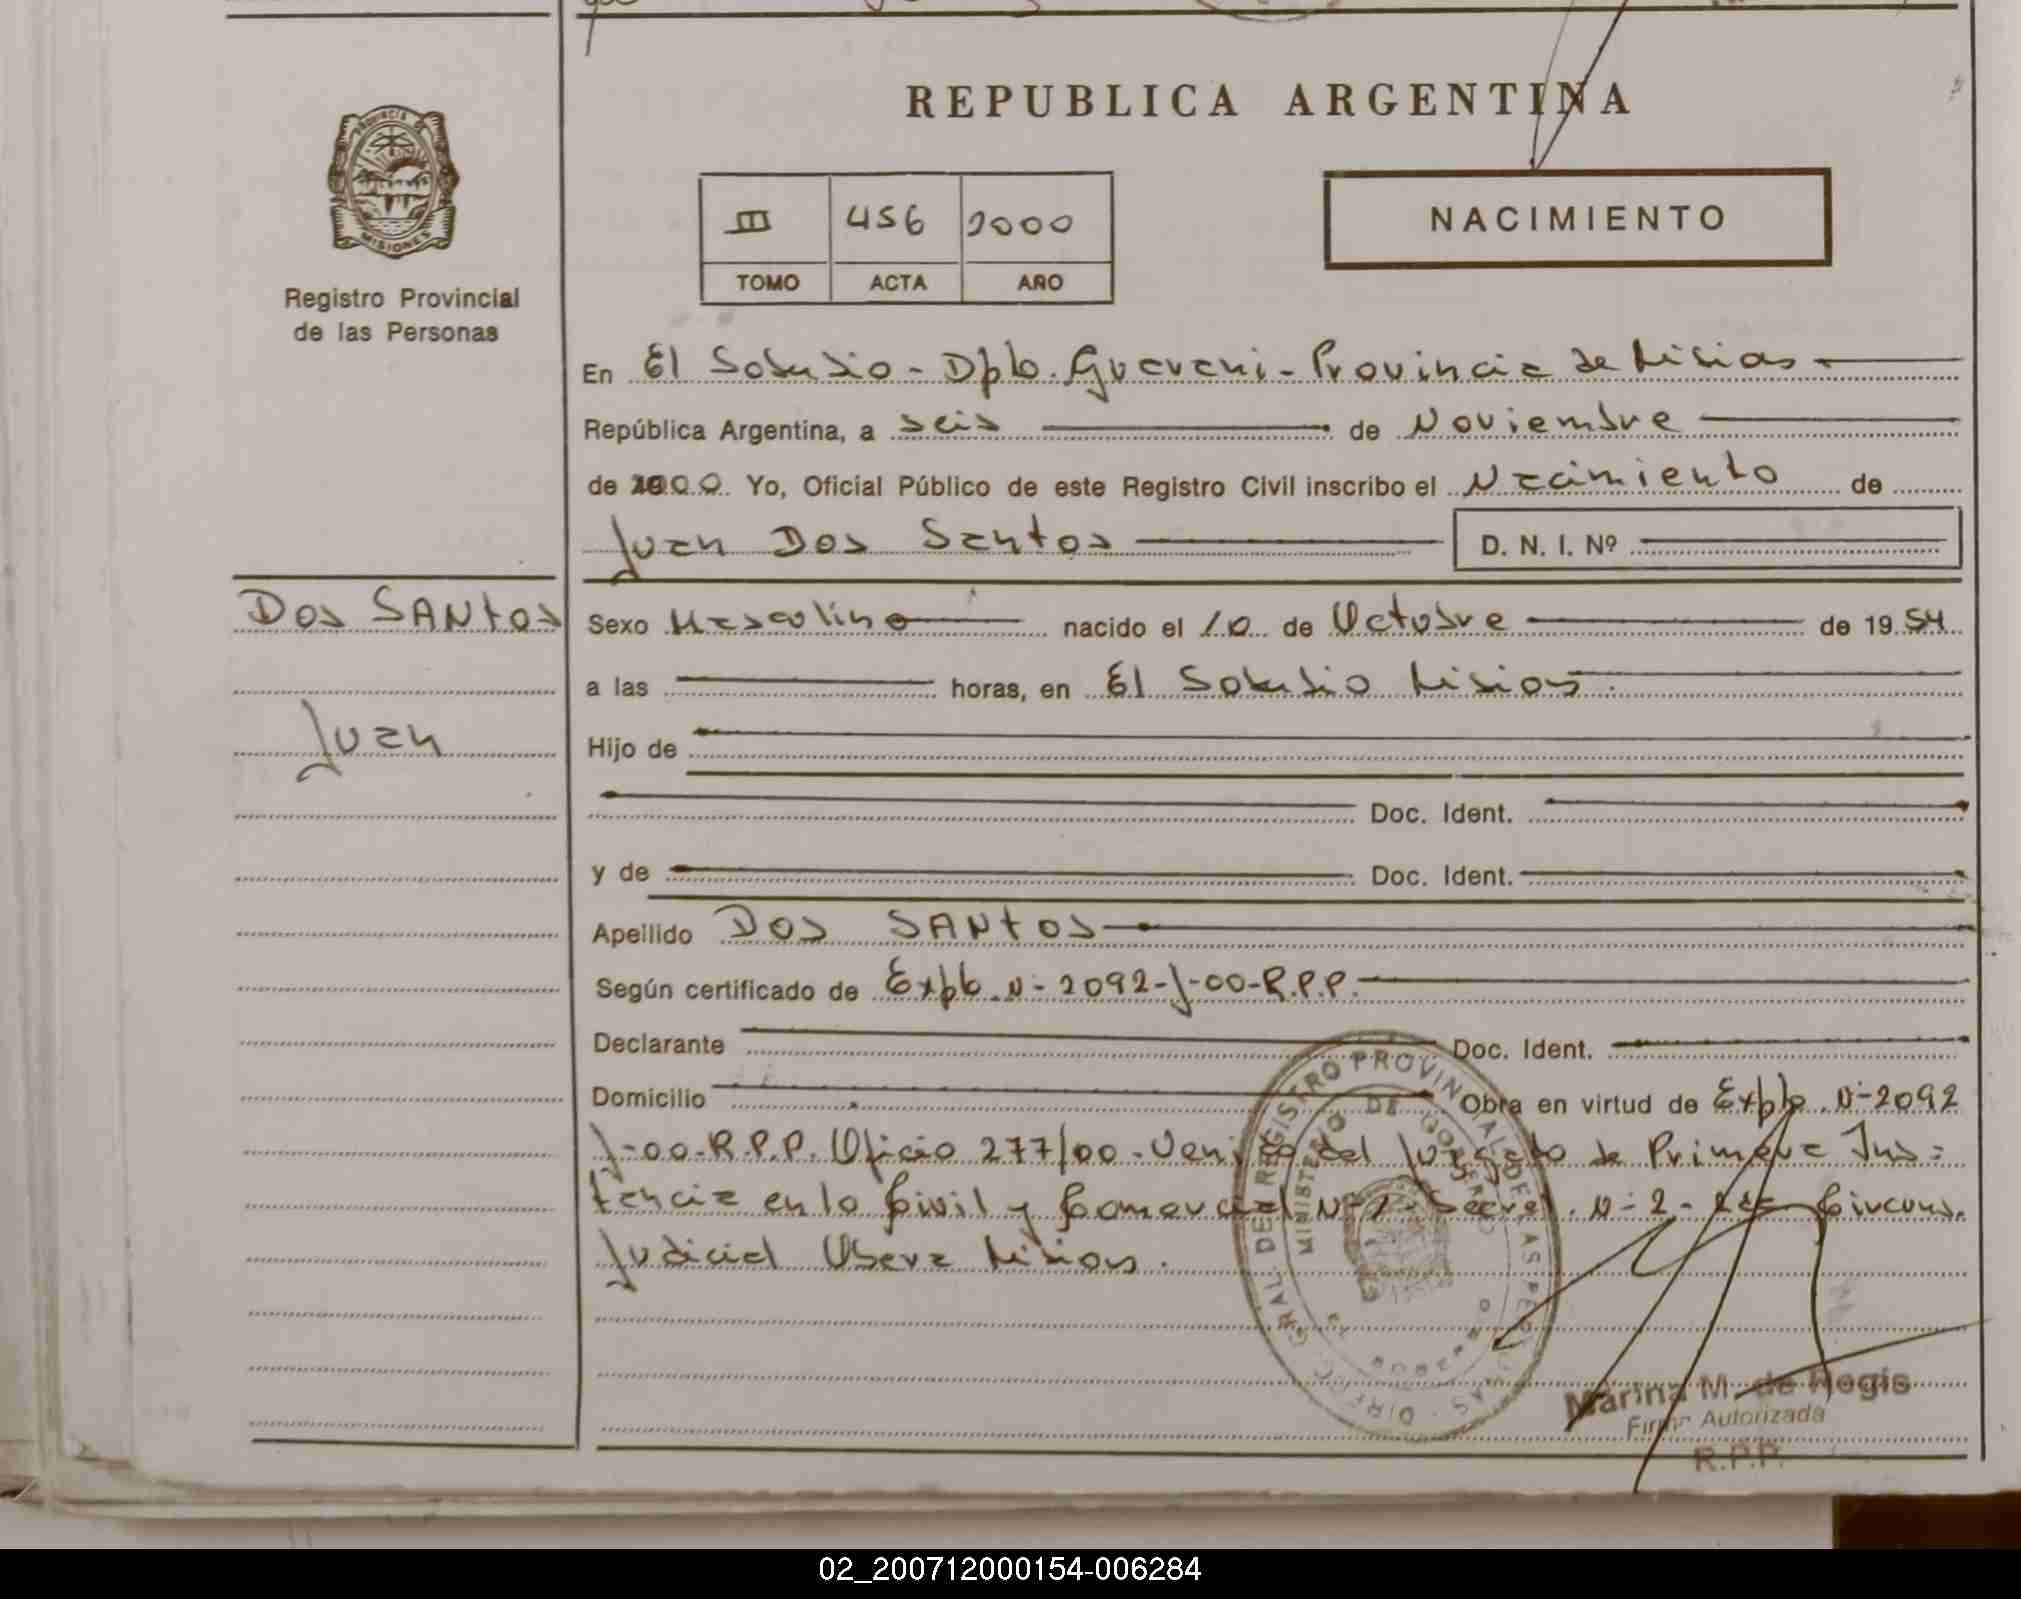 REPUBLICA ARGENTINA
PROVINCIA DE
MISIONES
Registro Provincial
de las Personas
III 456 2000
TOMO ACTA AÑO
NACIMIENTO
En El Soberbio - Dpto. Guarani - Provincia de Misiones
República Argentina, a seis de Noviembre
de 2000 Yo, Oficial Público de este Registro Civil inscribo el Nacimiento de
Juan Dos Santos D. N. I. Nº
DOS SANTOS
Juan
Sexo Masculino nacido el 10 de Octubre de 1954
a las horas, en El Soberbio Misiones.
Hijo de
Doc. Ident.
y de Doc. Ident.
Apellido DOS SANTOS
Según certificado de Expte. N- 2092-J-00-R.P.P.
Declarante Doc. Ident.
Domicilio Obra en virtud de Expte. N-2092
J-00-R.P.P. Oficio 277/00 - Venido del Juzgado de Primera Ins=
tancia en lo Civil y Comercial Nº 1 - Secret. N-2- Circuns.
Judicial Obera Misiones.
DIREC. GRAL. DEL REGISTRO PROVINCIAL DE LAS PERSONAS
MINISTERIO DE GOBIERNO
Marina M. de Regis
Firma Autorizada
R.P.P.
02_200712000154-006284